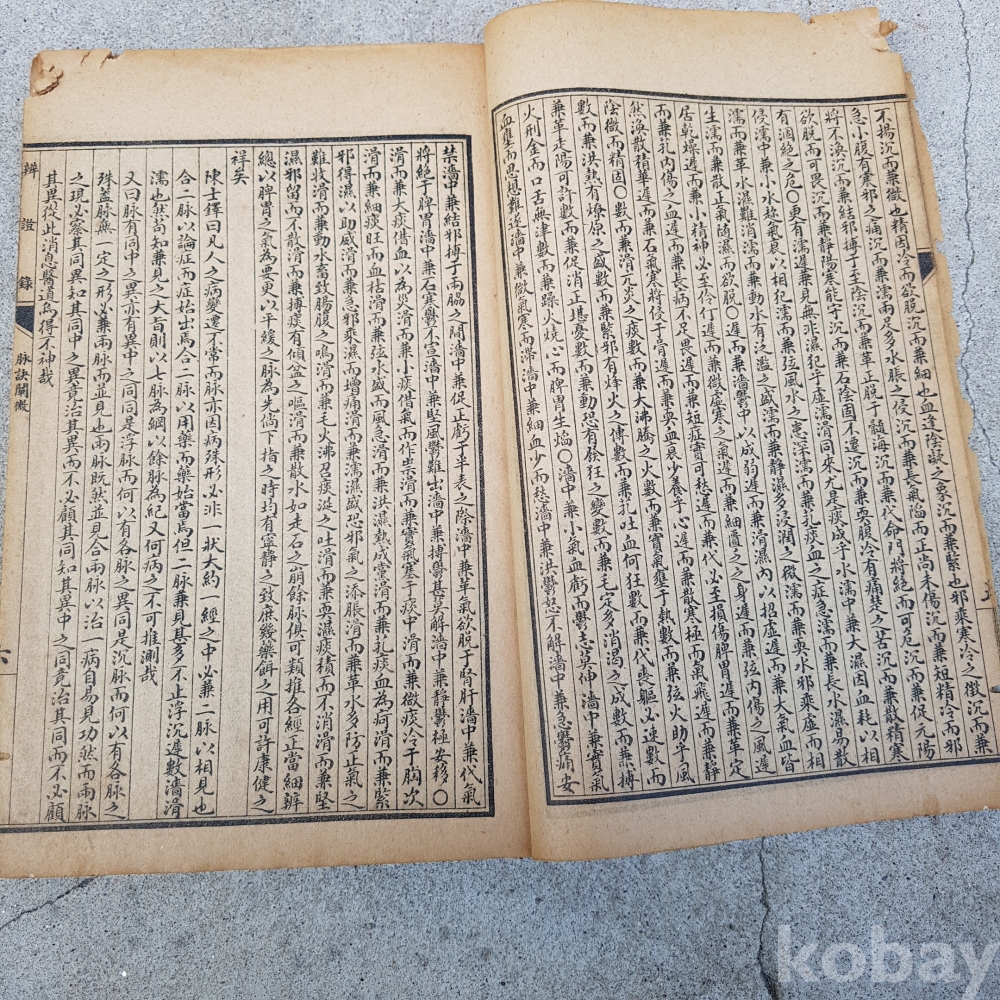 不揚沉而兼微也精因冷而欲脫沉而兼細也血逢陰凝之象沉而兼緊也邪乘寒冷之徵沉而兼
急小腹有裏邪之痛沉而兼濡兩足多水脹之侵沉而兼長氣陷而正尚未傷沉而兼短精冷而邪
將不渙沉而兼結邪搏于至陰沉而兼革正脫于髓海沉而兼代命門將絕而可危沉而兼促元陽
欲脫而可畏沉而兼靜陽寒能守沉而兼石陰固不遷沉而兼耎腹冷有痛楚之苦沉而兼散精寒
有涸絕之危〇更有濡而兼見無非濕犯乎虛濡滑同來尤是痰成乎水濡中兼大濕因血耗以相
侵濡中兼小水趁氣衰以相犯濡而兼弦風水之患深濡而兼孔痰血之症急濡而兼長水濕易散
濡而兼革水濕難消濡而兼動水有泛濫之盛濡而兼靜濕多浸潤之微濡而兼耎水邪乘虛而相
生濡而兼散正氣隨濕而欲脫〇遲而兼濇鬱中以成弱遲而兼滑濕內以招虛遲而兼大氣血皆
居乾燥遲而兼小精神必至伶仃遲而兼微虛寒之氣遲而兼細匱乏之身遲而兼弦內傷之風遲
而兼孔內傷之血遲而兼長病不足畏遲而兼短症實可愁遲而兼代必至損傷脾胃遲而兼革定
然渙散精華遲而兼石氣寒將侵于骨遲而兼耎血衰少養乎心遲而兼散寒極而氣飛遲而兼靜
陰微而精固〇數而兼滑亢炎之痰數而兼大沸騰之火數而兼實氣壅于熱數而兼弦火助乎風
數而兼洪熱有燎原之盛數而兼緊邪有烽火之傳數而兼孔吐血何狂數而兼代喪軀必速數而
兼革走陽可許數而兼促消正堪憂數而兼動恐有發狂之變數而兼毛定多消渴之成數而兼搏
火刑金而口舌無津數而兼躁火燒心而脾胃生焰〇濇中兼小氣血虧而鬱志莫伸濇中兼實氣
血壅而思想難遂濇中兼微氣寒而滯濇中兼細血少而愁濇中兼洪鬱怒不解濇中兼急鬱痛安
禁濇中兼結邪搏于兩脇之間濇中兼促正虧于半表之際濇中兼革氣欲脫于腎肝濇中兼代氣
將絕于脾胃濇中兼石寒鬱不宣濇中兼堅風鬱難出濇中兼搏鬱甚莫解濇中兼靜鬱極安移〇
滑而兼大痰借血以為災滑而兼小痰借氣而作祟滑而兼實氣塞于痰中滑而兼微痰冷于胸次
滑而兼細痰旺而血枯滑而兼弦水盛而風急滑而兼洪濕熱成黨滑而兼孔痰血為疴滑而兼緊
邪得濕以助威滑而兼急邪乘濕而增痛滑而兼濡濕盛恐邪氣之添脹滑而兼革水多防止氣之
難收滑而兼動水畜致腸腹之鳴滑而兼毛火沸召痰涎之吐滑而兼耎濕痰積而不消滑而兼堅
濕邪留而不散滑而兼搏痰有傾盆之嘔滑而兼散水如走石之崩餘脉俱可類推各經正當細辨
總以脾胃之氣為要更以平緩之脉為先倘下指之時均有寧靜之致庶幾藥餌之用可許康健之
祥矣
陳士鐸曰凡人之病變遷不常而脉亦因病殊形必非一狀大約一經之中必兼二脉以相見也
合二脉以論症而症始出焉合二脉以用藥而藥始當焉但二脉兼見甚多不止浮沉遲數濇滑
濡也然尚知兼見之大旨則以七脉為綱以餘脉為紀又何病之不可推測哉
又曰脉有同中之異亦有異中之同同是浮脉而何以有各脉之異同是沉脉而何以有各脉之
殊盖脉無一定之形必兼兩脉而並見也兩脉既然並見合兩脉以治一病自易見功然而兩脉
之現必察其同異知其同中之異竟治其異而不必顧其同知其異中之同竟治其同而不必顧
其異從此消息醫道烏得不神哉
辨證錄 脉訣闡微 六
kobay